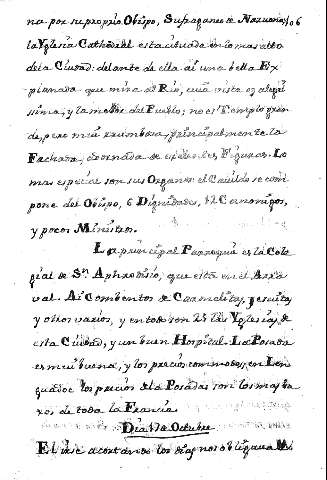 na por su proprio Obispo, Sufraganeo de Narvona, 106
la Yglesia Cathedral esta situada en lo mas alto
de la Ciudad: delante de ella ai una bella Ex
planada que mira al Rio, cuia vista es alegri
sima, y la mejor del Pueblo; no es Templo gran
de, pero mui sumtuoso, principalmente la
Fachada, adornada de exelentes Figuras. Lo
mas especial son sus Organos el Cavildo se com
pone del Obispo, 6 Dignidades, 12 Canonigos,
y pocos Ministros.
La principal Parroquia es la Cole
gial de Sn. Aphrodisio, que está en el Arra
val. Ai Combentos de Carmelitas, Jesuitas
y otros varios, y en todo son 25 las Yglesias de
esta Ciudad, y un buen Hospital. La Posada
es mui buena, y los precios commodos, en Len
guadoc los precios de las Posadas son los mas ba
xos de toda la Francia.
Dia 17 de Octubre
El irse acortando los dias nos obligava